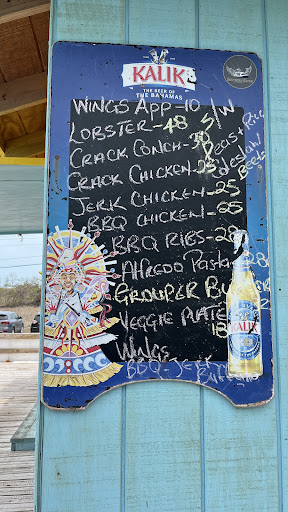 KALIK
THE BEER OF
THE BAHAMAS
WINGS APP - 10
LOBSTER - 48 S/W
CRACK CONCH - 30 Peas + Ric
CRACK CHICKEN - 25 Coleslaw
JERK CHICKEN - 25
BBQ CHICKEN - 25
BBQ RIBS - 28
Alfredo Pasta - 28
GROUPER
VEGGIE PLATE
18
WINGS
BBQ - JERK
KALIK